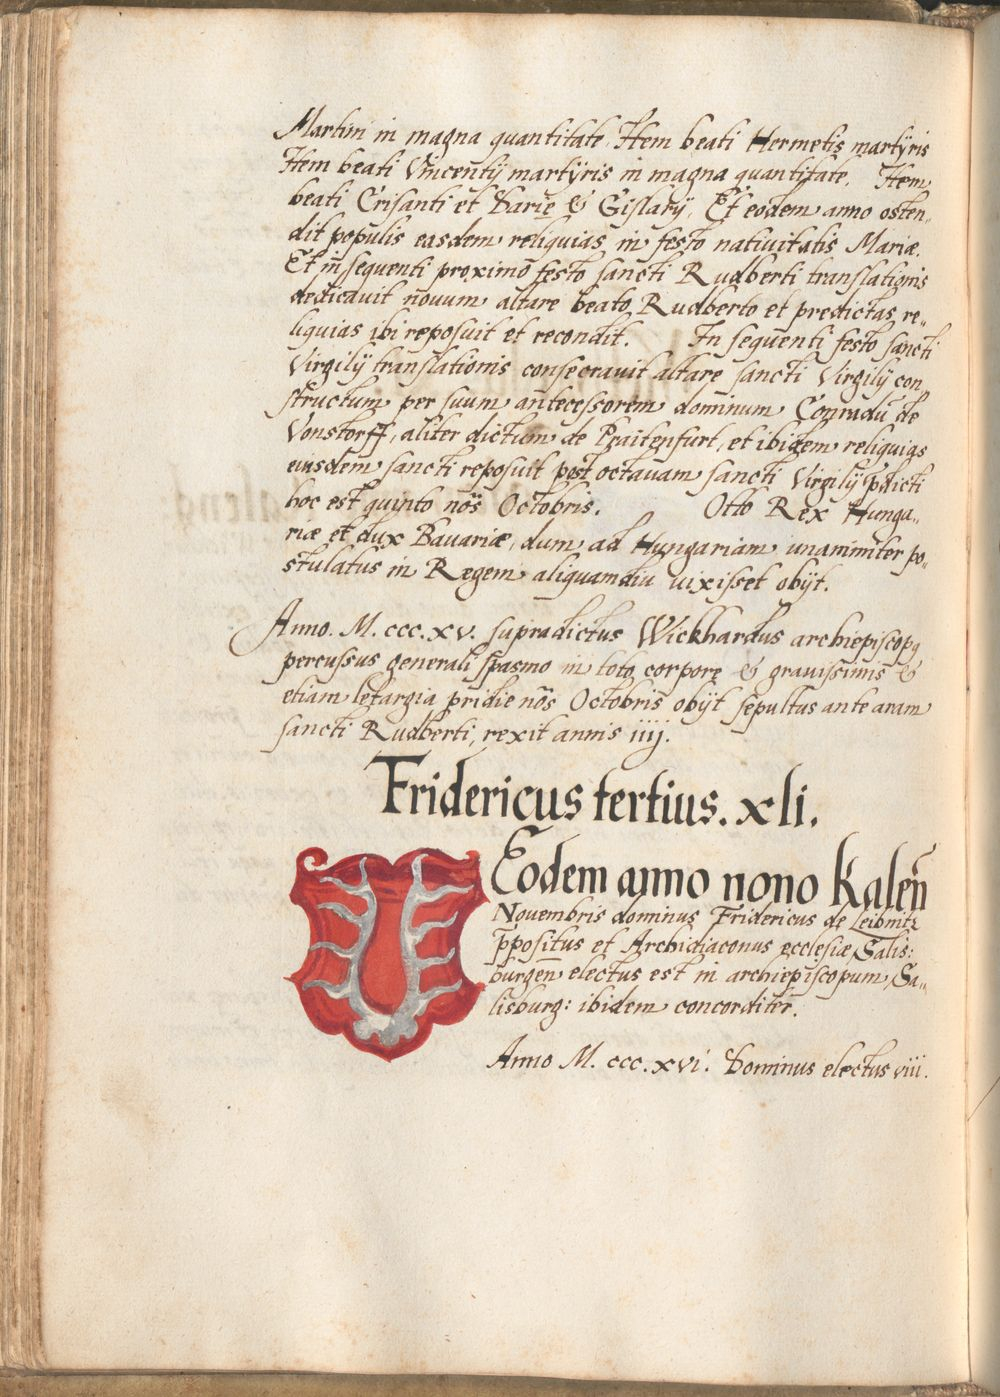 Martini in magna quantitate. Item beati Hermetis martÿris
Item beati Vincentÿ martÿris in magna quantitate. Item
beati Crisanti et Darię & Gislarÿ. Et eodem anno osten„
dit populis easdem reliquias in festo nativitatis Mariæ.
Et insequenti proximo festo sancti Rudberti translationis
dedicavit novum altare beato Rudberto et predictas re„
liquias ibi reposuit et recondit. In sequenti festo sancti
Virgilÿ translationis consecravit altare sancti Virgilÿ con„
structum per suum antecessorem dominum Conradū de
Vonstorff, aliter dictum de Praitenfurt, et ibidem reliquias
eiusdem sancti reposuit post octavam sancti Virgilÿ p̄dicti
hoc est quinto nōs Octobris. Otto Rex Hunga„
riæ et dux Bavariæ, dum ad Hungariam unanimiter po„
stulatus in Rægem aliquamdiu vixisset obÿt.
Anno. M. ccc. xv. supradictus Wickhardus archiepiscopꝯ
percussus generali spasmo in toto corpore & gravissimis &
etiam letargia pridie nōs Octobris obÿt sepultus ante aram
sancti Rudberti, rexit annis iiij.
Fridericus tertius. xli.
Eodem anno nono Kaleñ
Novembris dominus Fridericus de Leibnitz
p̄positus et Archidiaconus ecclesiæ Salis:
burgeñ electus est in archiepiscopum Sa„
lisburg: ibidem concorditer.
Anno M. ccc. xvi. Dominus electus viii.